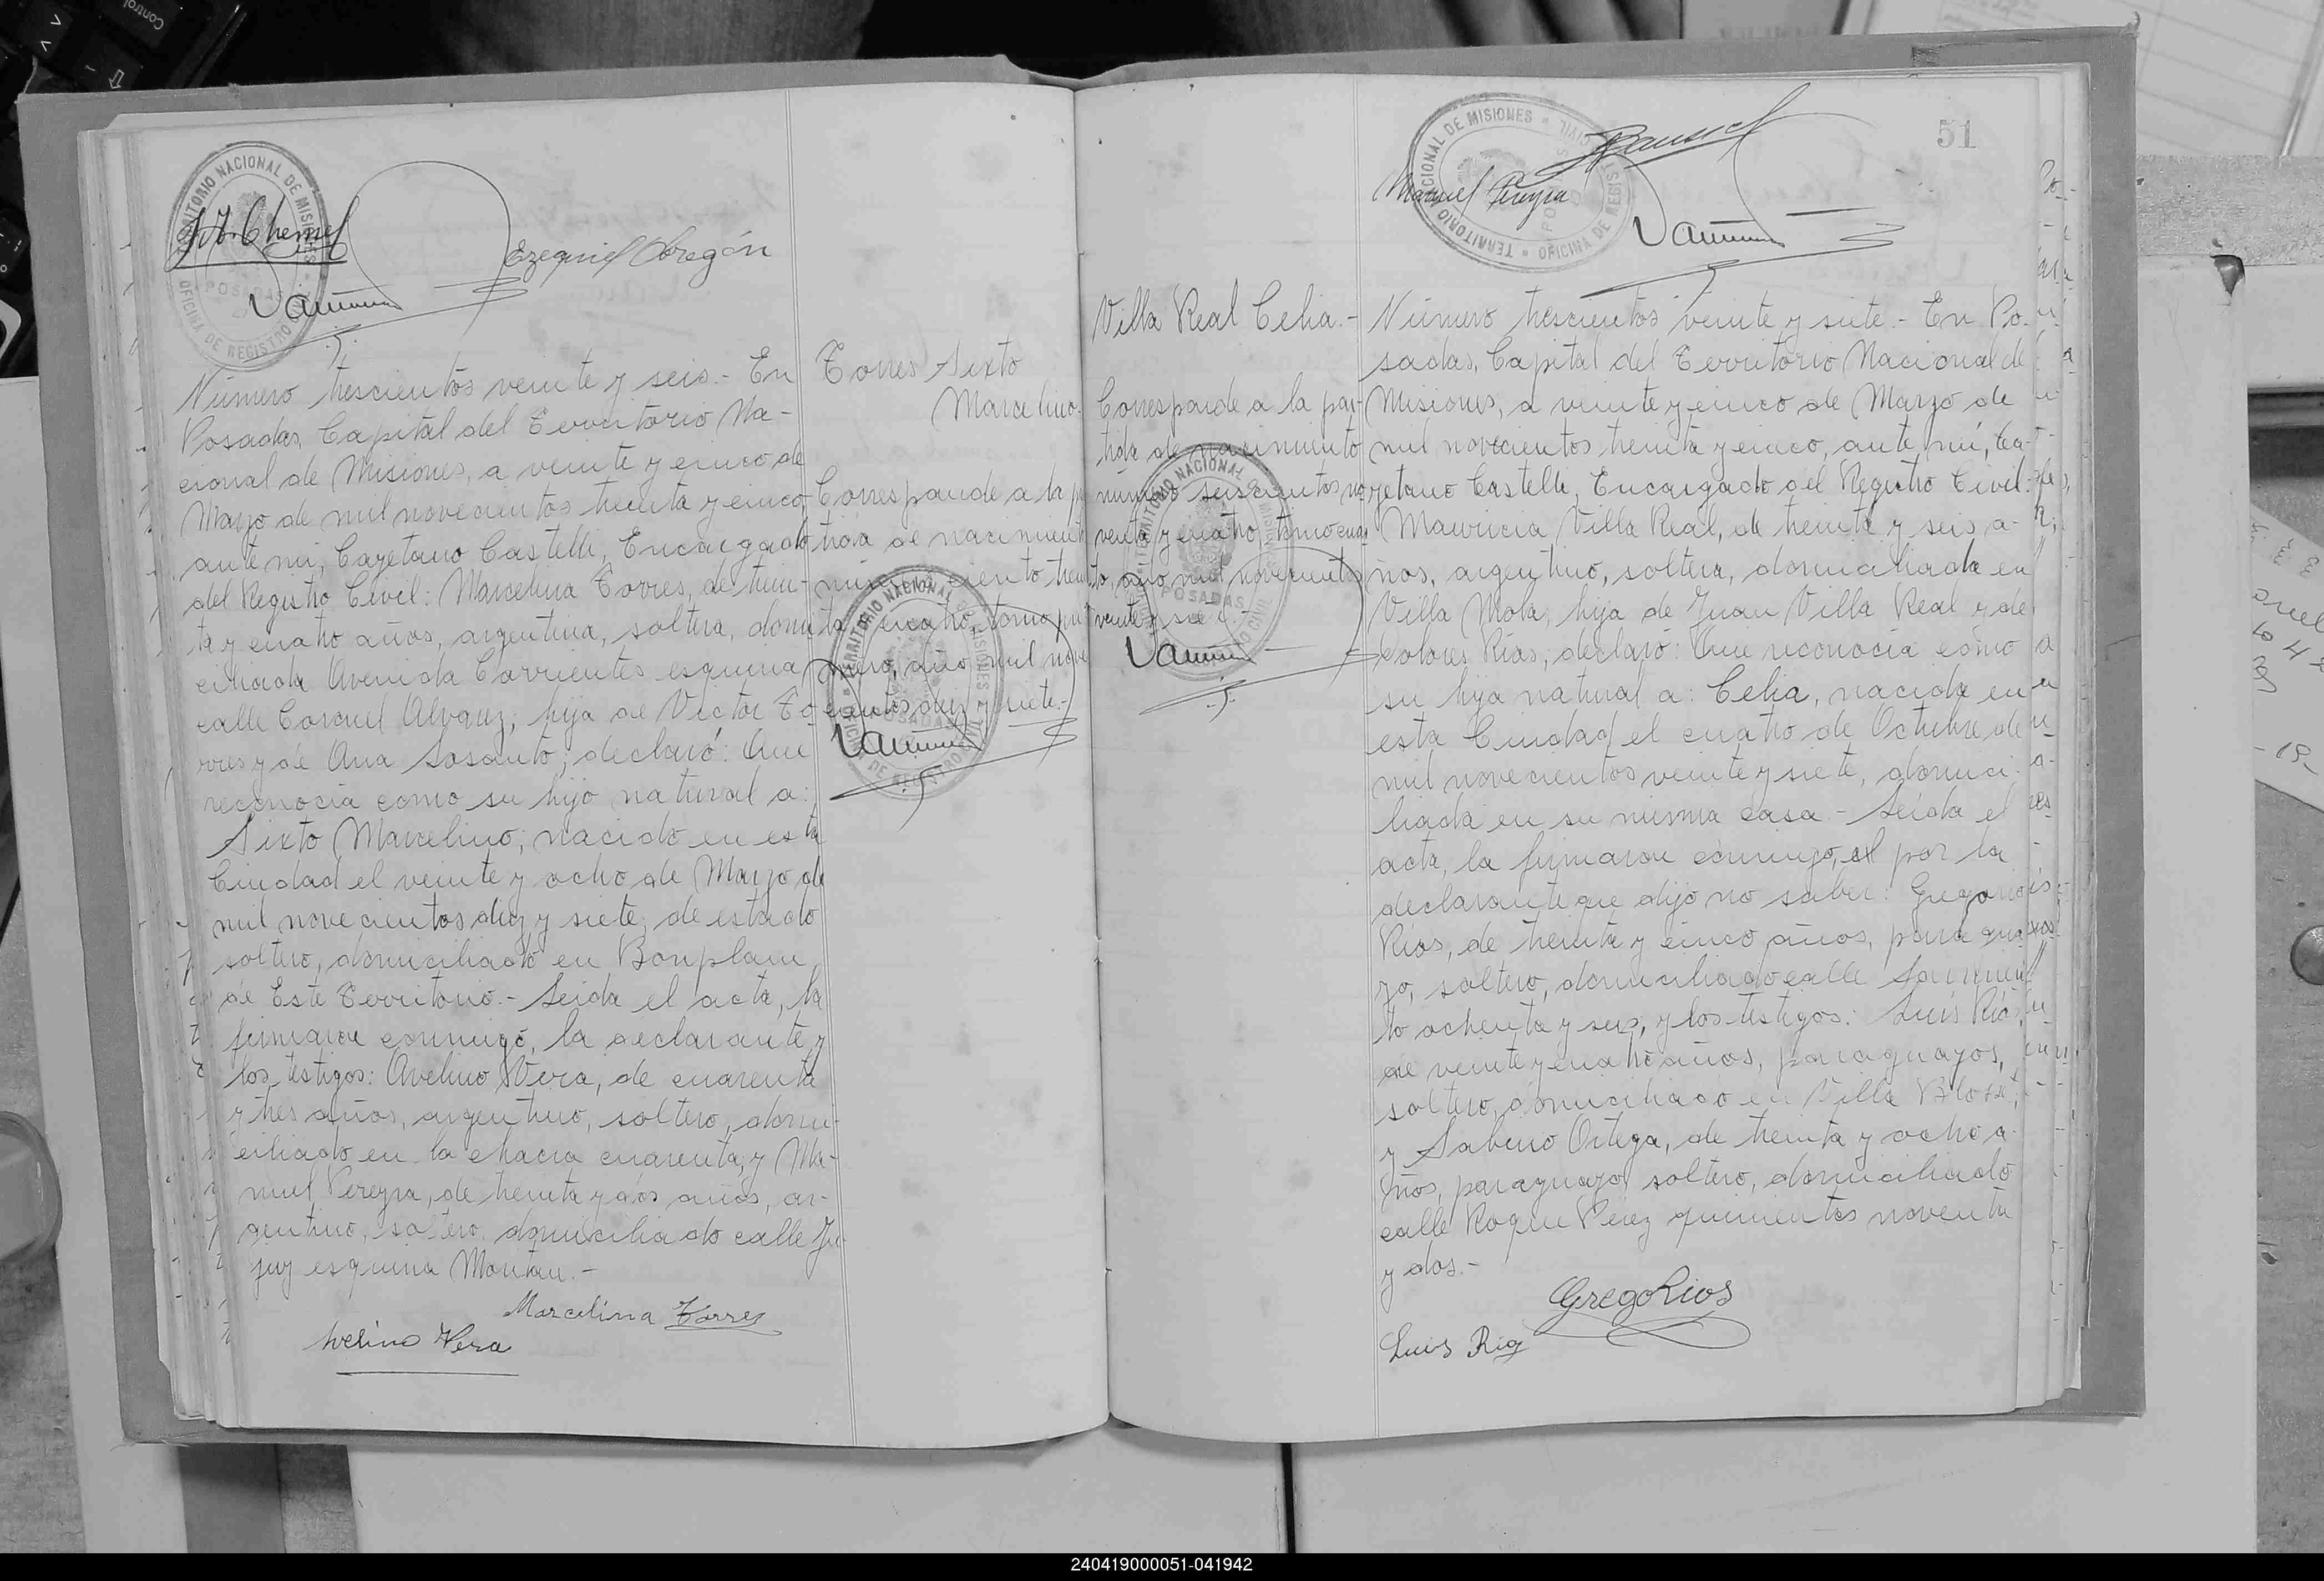 TERRITORIO NACIONAL DE MISIONES
OFICINA DE REGISTRO CIVIL
POSADAS
Ezequiel Obregón
Número trescientos veinte y seis.- En
Posadas, Capital del Territorio Na-
cional de Misiones, a veinte y cinco de
Marzo de mil novecientos treinta y cinco,
ante mi, Cayetano Castelli, Encargado
del Registro Civil: Marcelina Torres, de trein-
ta y cuatro años, argentina, soltera, domi-
ciliada Avenida Corrientes esquina
calle Coronel Alvarez, hija de Victor To-
rres y de Ana Sosa; declaró: Que
reconocia como su hijo natural a:
Sixto Marcelino, nacido en esta
Ciudad el veinte y ocho de Marzo de
mil novecientos diez y siete, de estado
soltero, domiciliado en Bonplam
de Este Territorio.- Leida el acta, la
firmaron conmigo, la declarante y
los testigos: Avelino Vera, de cuarenta
y tres años, argentino, soltero, domi-
ciliado en la chacra cuarenta, y Ma-
nuel Pereyra, de treinta y dos años, ar-
gentino, soltero, domiciliado calle Ju-
juy esquina
Marcelina Torres
Avelino Vera
Torres Sixto
Marcelino.
Corresponde a la par-
tida de nacimiento
ciento trein-
ta y cuatro, tomo pri-
mero, año mil nove-
cientos diez y siete.-
TERRITORIO NACIONAL DE MISIONES
OFICINA DE REGISTRO CIVIL
POSADAS
51
Manuel Pereyra
TERRITORIO NACIONAL DE MISIONES
OFICINA DE REGISTRO CIVIL
Villa Real Celia.-
Corresponde a la par-
tida de nacimiento
número seiscientos no-
venta y cuatro, tomo cua-
to, año mil novecientos
veinte y siete.-
TERRITORIO NACIONAL DE MISIONES
REGISTRO CIVIL
POSADAS
Número trescientos veinte y siete.- En Po-
sadas, Capital del Territorio Nacional de
Misiones, a veinte y cinco de Marzo de
mil novecientos treinta y cinco, ante mi, Ca-
yetano Castelli, Encargado del Registro Civil:
Mauricia Villa Real, de treinta y seis a-
ños, argentino, soltera, domiciliada en
Villa Mola, hija de Juan Villa Real y de
Dolores Rios; declaró: Que reconocia como
su hija natural a: Celia, nacida en
esta Ciudad el cuatro de Octubre de
mil novecientos veinte y siete, domici-
liada en su misma casa.- Leida el
acta, la firmaron conmigo, el por la
declarante que dijo no saber: Gregorio
Rios, de treinta y cinco años, paragua-
yo, soltero, domiciliado calle Sarmien-
to ochenta y seis, y los testigos: Luis Rios,
de veinte y cuatro años, paraguayos,
soltero, domiciliado en Villa
y Sabino Ortega, de treinta y ocho a-
ños, paraguayo, soltero, domiciliado
calle Roque Perez quinientos noventa
y dos.-
GregoRios
Luis Rios
240419000051-041942